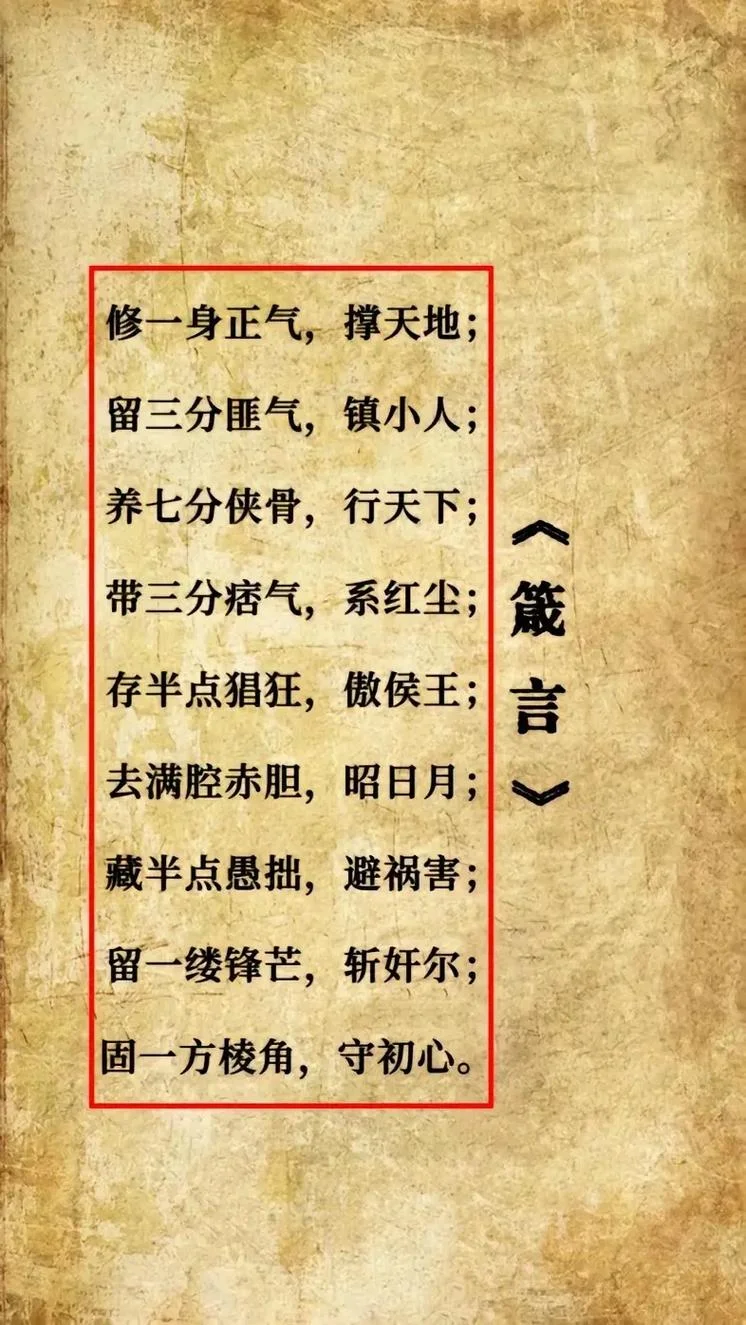 修一身正气，撑天地；
留三分匪气，镇小人；
养七分侠骨，行天下；
带三分痞气，系红尘；
存半点猖狂，傲侯王；
去满腔赤胆，昭日月；
藏半点愚拙，避祸害；
留一缕锋芒，斩奸尔；
固一方棱角，守初心。
《箴言》